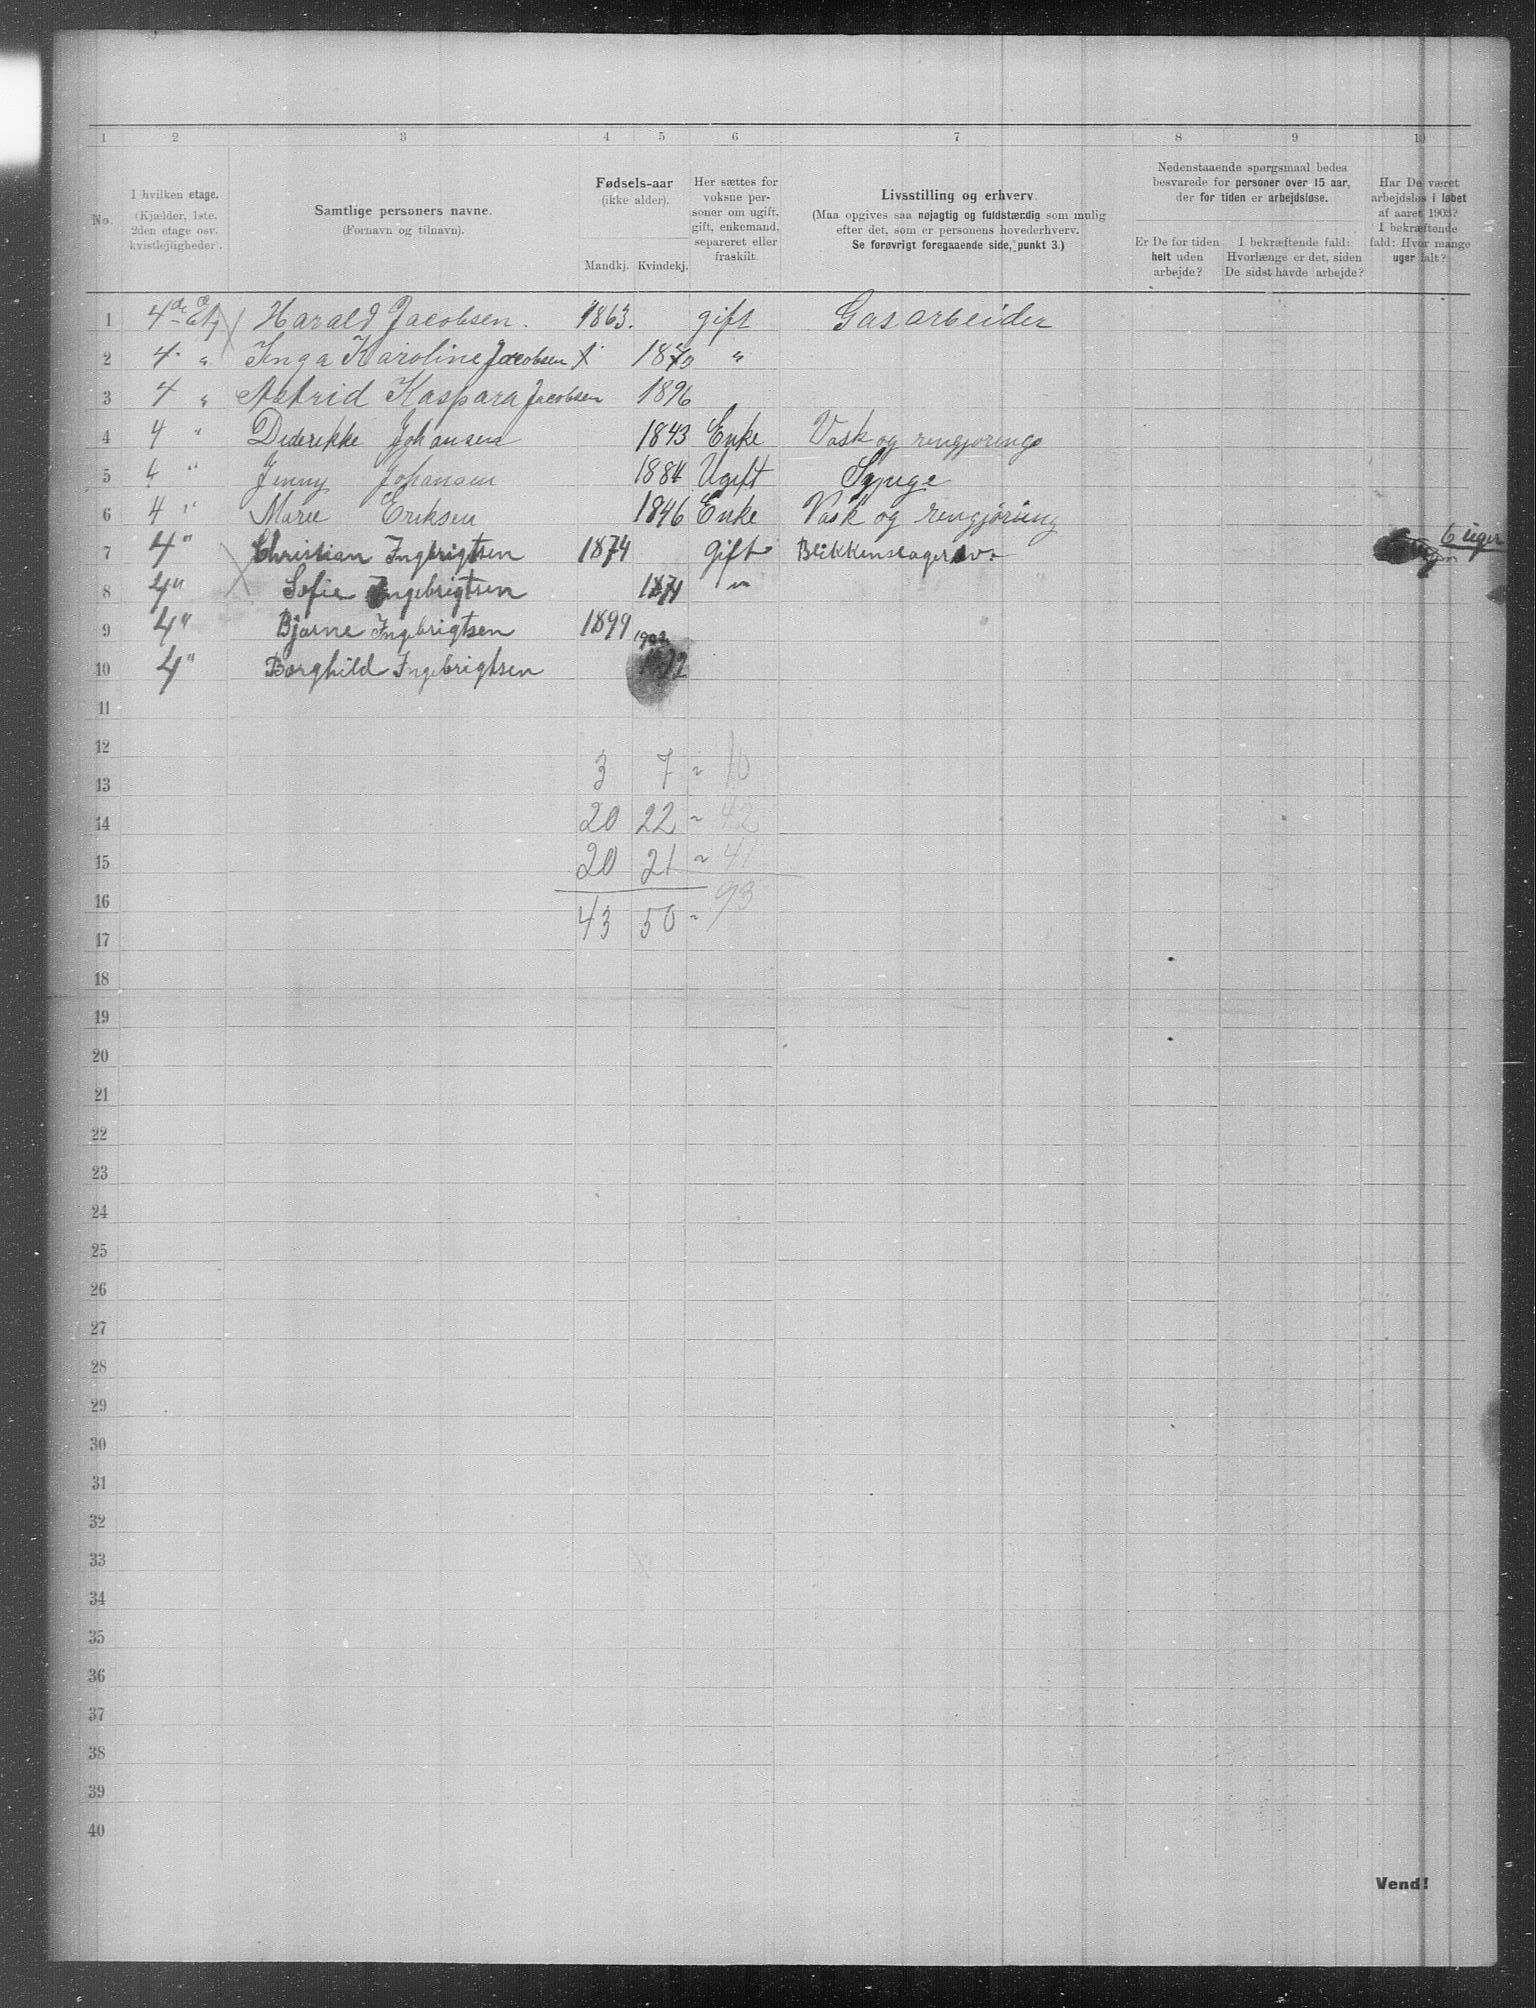 1 2 3 4 5 6 7 8 9 10
No.
I hvilken etage.
(Kjælder, 1ste.
2den etage osv.
kvistlejligheder.
Samtlige personers navne.
(Fornavn og tilnavn).
Fødsels-aar
(ikke alder).
Mandkj. Kvindekj.
Her sættes for
voksne per-
soner om ugift,
gift, enkemand,
separeret eller
fraskilt.
Livsstilling og erhverv.
(Maa opgives saa nøjagtig og fuldstændig som mulig
efter det, som er personens hovederhverv.
Se forøvrigt foregaaende side, punkt 3.)
Nedenstaaende spørgsmaal bedes
besvarede for personer over 15 aar,
der for tiden er arbejdsløse.
Er De for tiden
helt uden
arbejde?
I bekræftende fald:
Hvorlænge er det, siden
De sidst havde arbejde?
Har De været
arbejdsløs i løbet
af aaret 1903?
I bekræftende
fald: Hvor mange
uger ialt?
1 4de Etg Harald Jacobsen. 1863. gift Gasarbeider
2 4. " Inga Karoline Jacobsen 1870 "
3 4 " Astrid Kaspara Jacobsen 1896
4 4 " Diderikke Johansen 1843 Enke Vask og rengjøring
5 4 " Jenny Johansen 1884 Ugift Sypige
6 4 " Marie Eriksen 1846 Enke Vask og rengjøring
7 4 " Christian Ingbrigtsen 1874 Gift Blikkenslagersv. 6 uger
8 4 " Sofie Ingebrigtsen 1871 "
9 4 " Bjarne Ingebrigtsen 1899
1902
10 4 " Borghild Ingebrigtsen
11
12
13 3 7 ~ 10
14 20 22 ~ 42
15 20 21 ~ 41
16 93
17 43 50 ~
18
19
20
21
22
23
24
25
26
27
28
29
30
31
32
33
34
35
36
37
38
39
40
Vend!